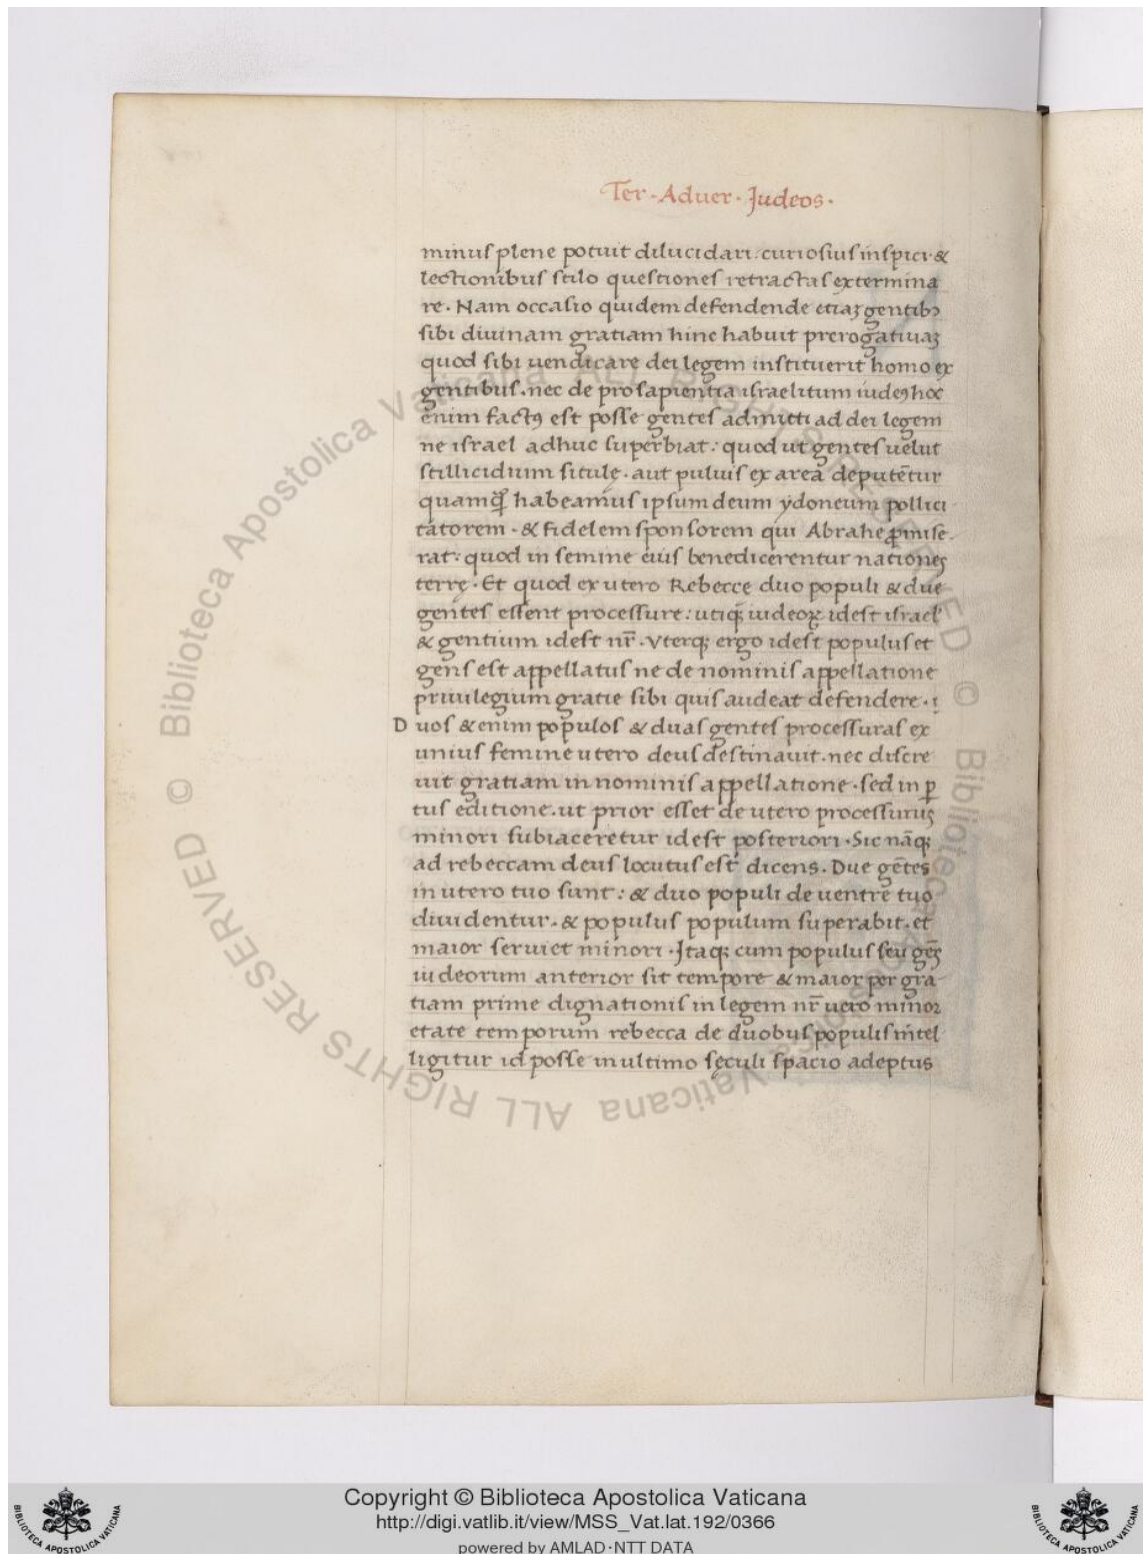 Ter · Aduer · Judeos ·
minus plene potuit dilucidari: curiosius inspici · &
lectionibus stilo questiones retractas extermina
re · Nam occasio quidem defendende etiaꝫ gentibꝰ
sibi diuinam gratiam hinc habuit prerogatiuaꝫ
quod sibi uendicare dei legem instituerit homo ex
gentibus · nec de prosapientia israelitum iudeꝰ hoc
enim factꝰ est posse gentes admitti ad dei legem
ne israel adhuc superbiat: quod ut gentes uelut
stillicidium situlę · aut puluis ex area deputētur
quamꝗ̄ habeamus ipsum deum ydoneum pollici
tatorem · & fidelem sponsorem qui Abrahe ꝓmise
rat: quod in semine eius benedicerentur nationes
terrę · Et quod ex utero Rebecce duo populi & due
gentes essent processure: utiqꝫ iudeoꝝ idest israel
& gentium idest nr̄ · Vterqꝫ ergo idest populus et
gens est appellatus ne de nominis appellatione
priuilegium gratie sibi quis audeat defendere ·
Duos & enim populos & duas gentes processuras ex
unius femine utero deus destinauit · nec discre
uit gratiam in nominis appellatione · sed in ꝑ
tus editione · ut prior esset de utero processurus
minori subiaceretur idest posteriori · Sic nāqꝫ
ad rebeccam deus locutus est dicens · Due gētes
in utero tuo sunt: & duo populi de uentre tuo
diuidentur · & populus populum superabit · et
maior seruiet minori · Jtaqꝫ cum populus seu gēs
iudeorum anterior sit tempore & maior per gra
tiam prime dignationis in legem nr̄ uero minor
etate temporum rebecca de duobus populis intel
ligitur id posse in ultimo sęculi spacio adeptus
© Biblioteca Apostolica Vaticana ALL RIGHTS RESERVED © Biblioteca Apostolica Vaticana ALL RIGHTS RESERVED
BIBLIOTECA APOSTOLICA VATICANA
Copyright © Biblioteca Apostolica Vaticana
http://digi.vatlib.it/view/MSS_Vat.lat.192/0366
powered by AMLAD·NTT DATA
BIBLIOTECA APOSTOLICA VATICANA